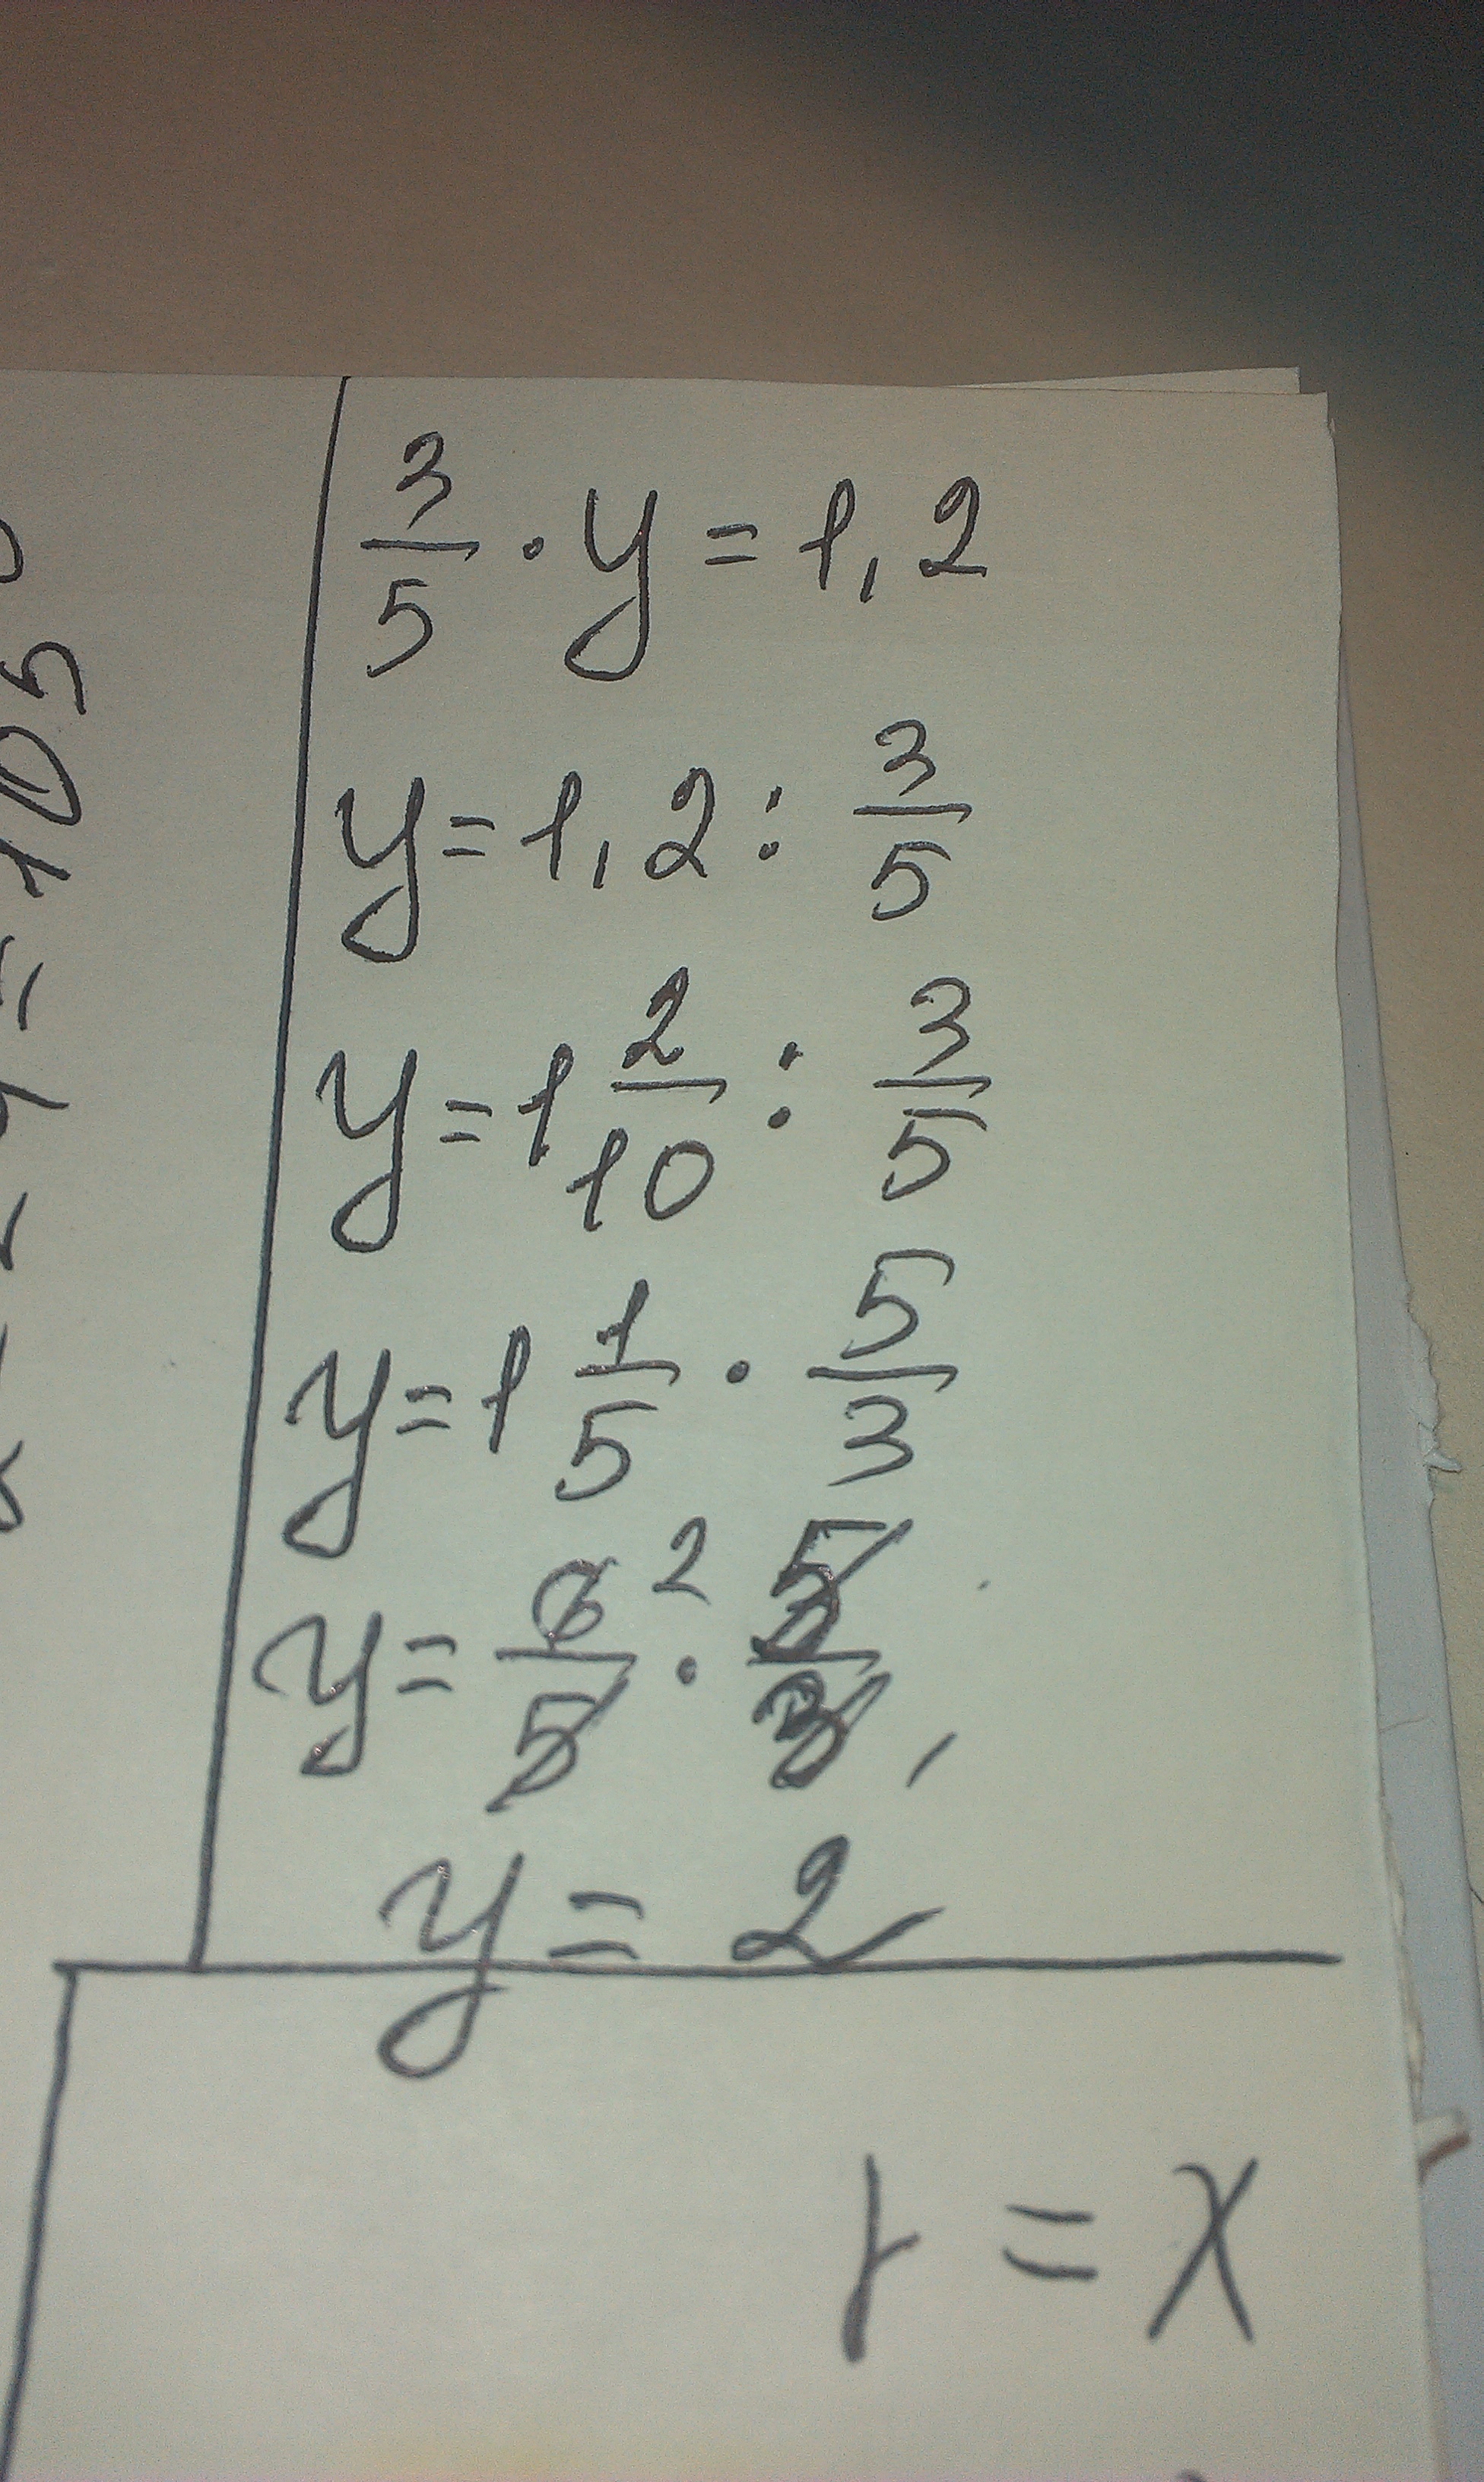 3/5 · y = 1,2
y = 1,2 : 3/5
y = 1 2/10 : 3/5
y = 1 1/5 · 5/3
y = 6/5 2 · 5/3
y = 2
x = 1
105